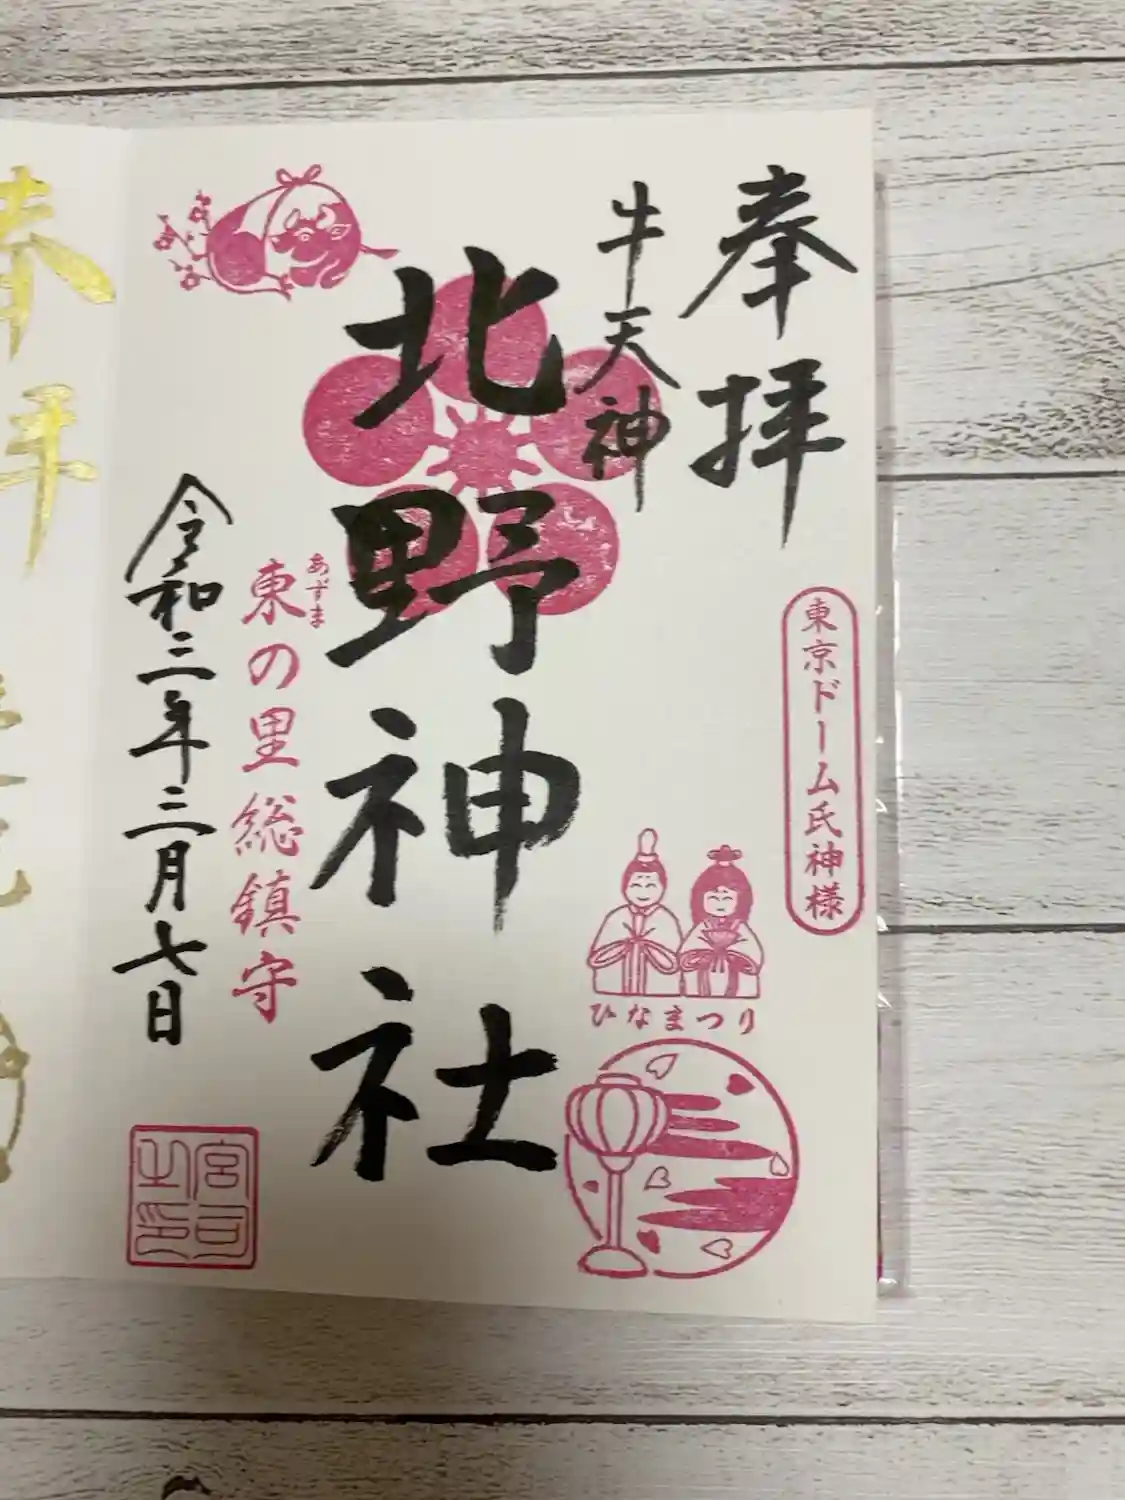 奉拝
牛天神
東京ドーム氏神様
北野神社
ひなまつり
あずま
東の里総鎮守
令和三年三月七日
宮司之印
奉拝